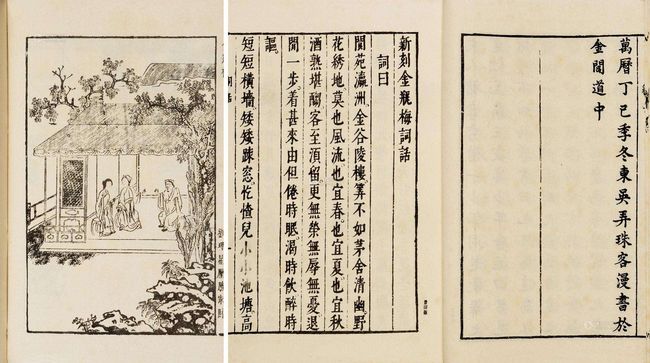 萬曆丁巳季冬東吳弄珠客漫書於
金閶道中
新刻金瓶梅詞話
詞曰
閬苑瀛洲金谷陵樓筭不如茅舍清幽野
花綉地莫也風流也宜春也宜夏也宜秋
酒熟堪客至湏留更無榮無辱無憂退
閒一步着甚來由但倦時眠渴時飲醉時
謳
短短横墻矮矮踈窓忔楂兒小小池塘高